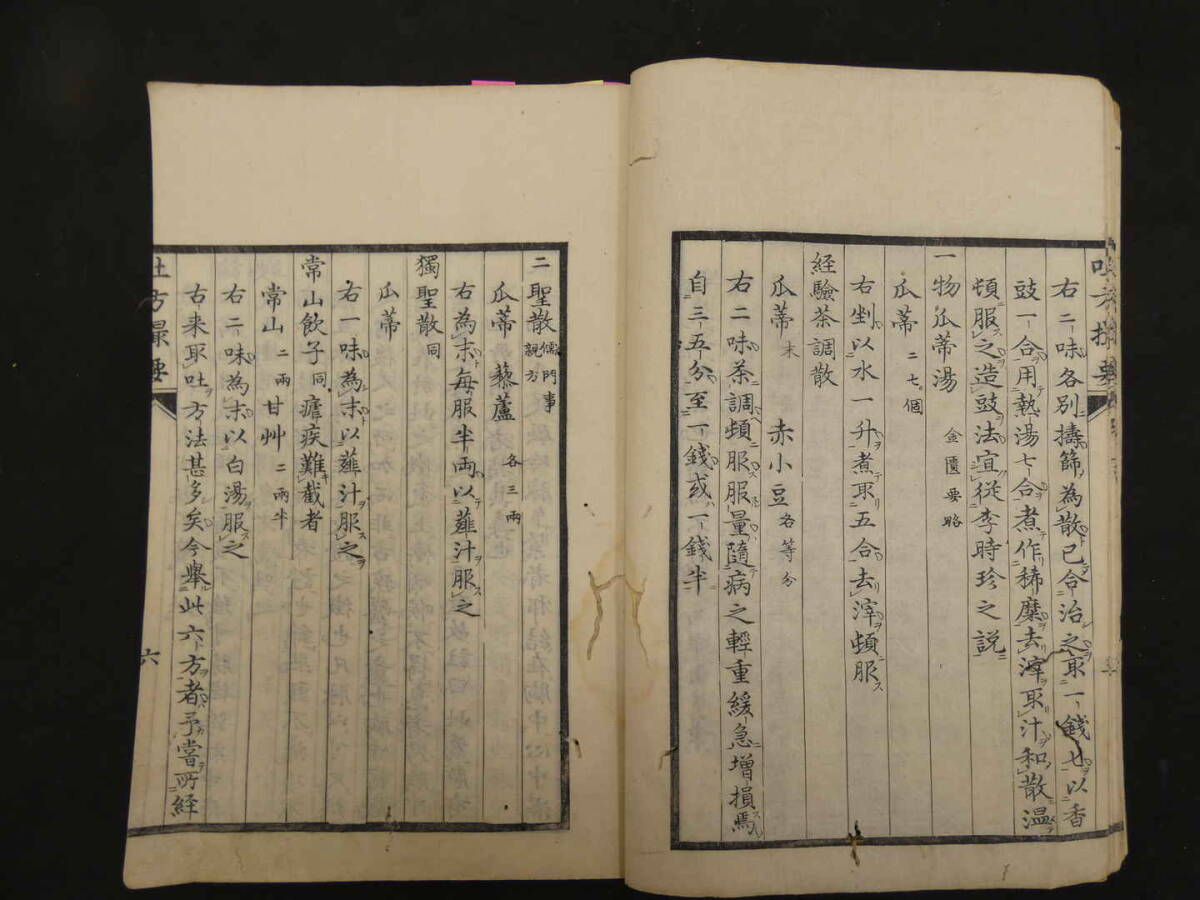 右二味各別擣篩為散已合治之取一錢匕以香
豉一合用熱湯七合煮作稀糜去滓取汁和散温
頓服之造豉法宜從李時珍之説
一物瓜蒂湯 金匱要略
瓜蒂 二七個
右剉以水一升煮取五合去滓頓服
経驗茶調散
瓜蒂末 赤小豆 各等分
右二味茶調頓服服量隨病之輕重緩急増損焉
自三五分至一錢或一錢半
二聖散 儒門事親方
瓜蒂 藜蘆 各三兩
右為末每服半両以薤汁服之
獨聖散同
瓜蒂
右一味為末以薤汁服之
常山飲子同 瘧疾難截者
常山 二兩 甘艸 二兩半
右二味為末以白湯服之
古来取吐方法甚多矣今舉此六方者予嘗所経
吐方撮要
六